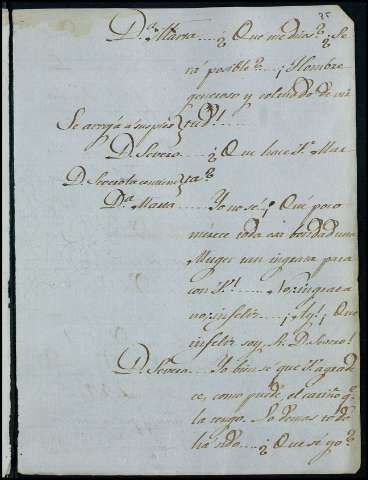 25
D.ª Marta.... ¿Que me dices? ¿Se-
rá posible?... ¡Hombre
generoso y colmado de vir
Se arroja á sus pies } tud!....
D. Severo.... ¿Que hace V. Mar-
D. Severo la contiene } ta?
D.ª Marta.... Yo no sé! ¡Qué poco
merece toda esa bondad una
Muger tan ingrata para
con V.!.... No: ingrata
no: infeliz.... ¡Ay! ¡Que
infeliz soy, D. Severo!
D. Severo.... Yo bien se que V. agrade-
ce, como puede, el cariño q.ᵉ
la tengo. Lo demas to de
ha sido.... ¿Que se yo?